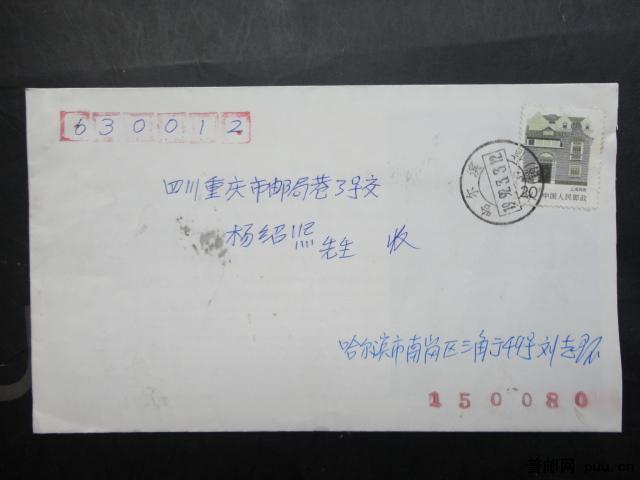 630012
四川重庆市邮局巷3号交
杨绍熙先生 收
哈尔滨
1992.3.3.12
上海民居
20 中国人民邮政
哈尔滨市南岗区三角 49号刘志
150080
普邮网 puu.cn